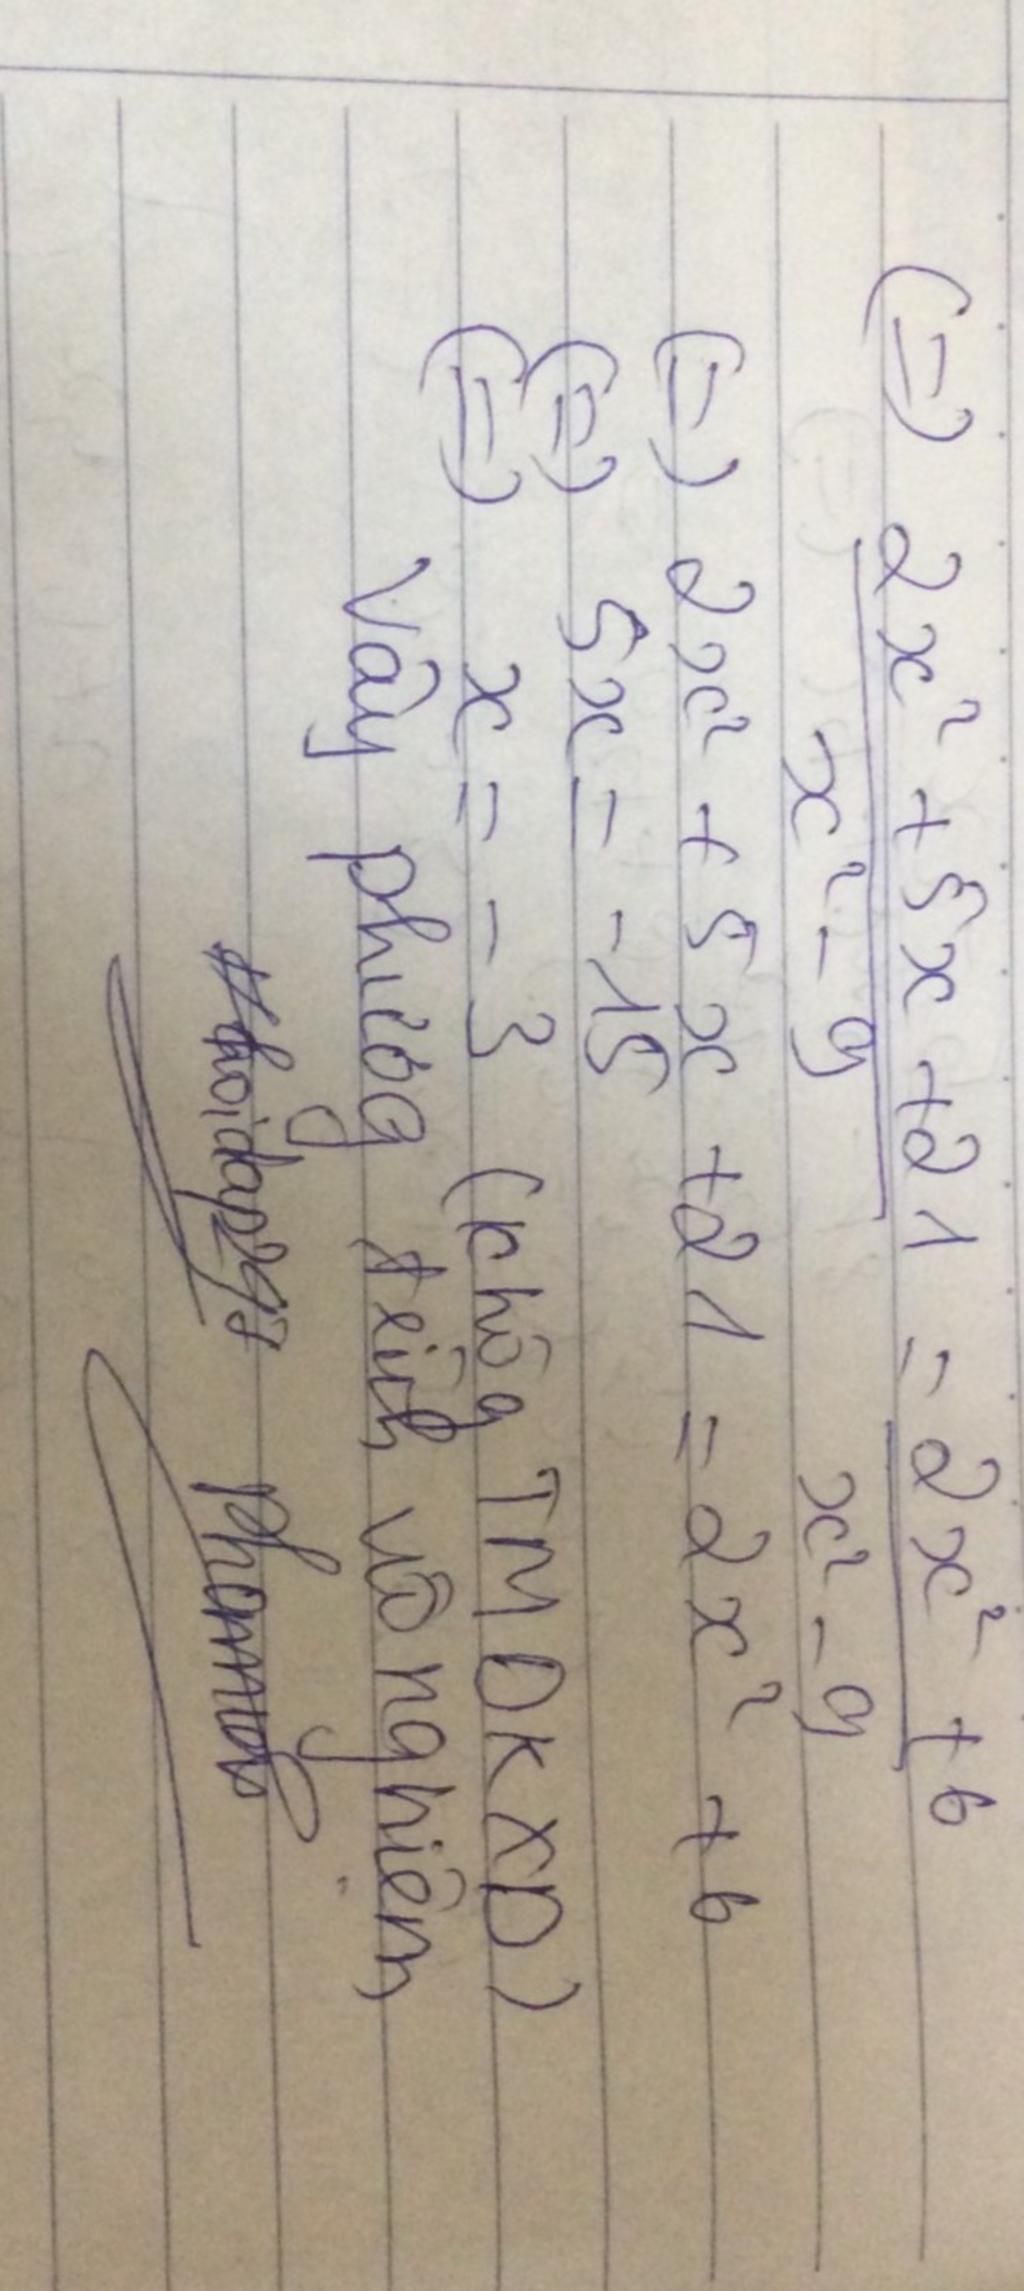 (=) 2x² + 5x + 21 / x² - 9 = 2x² + 6 / x² - 9
(=) 2x² + 5x + 21 = 2x² + 6
(=) 5x = -15
(=) x = -3 (khôg TMĐKXĐ)
Vậy phươg trình vô nghiệm
#hoidap247